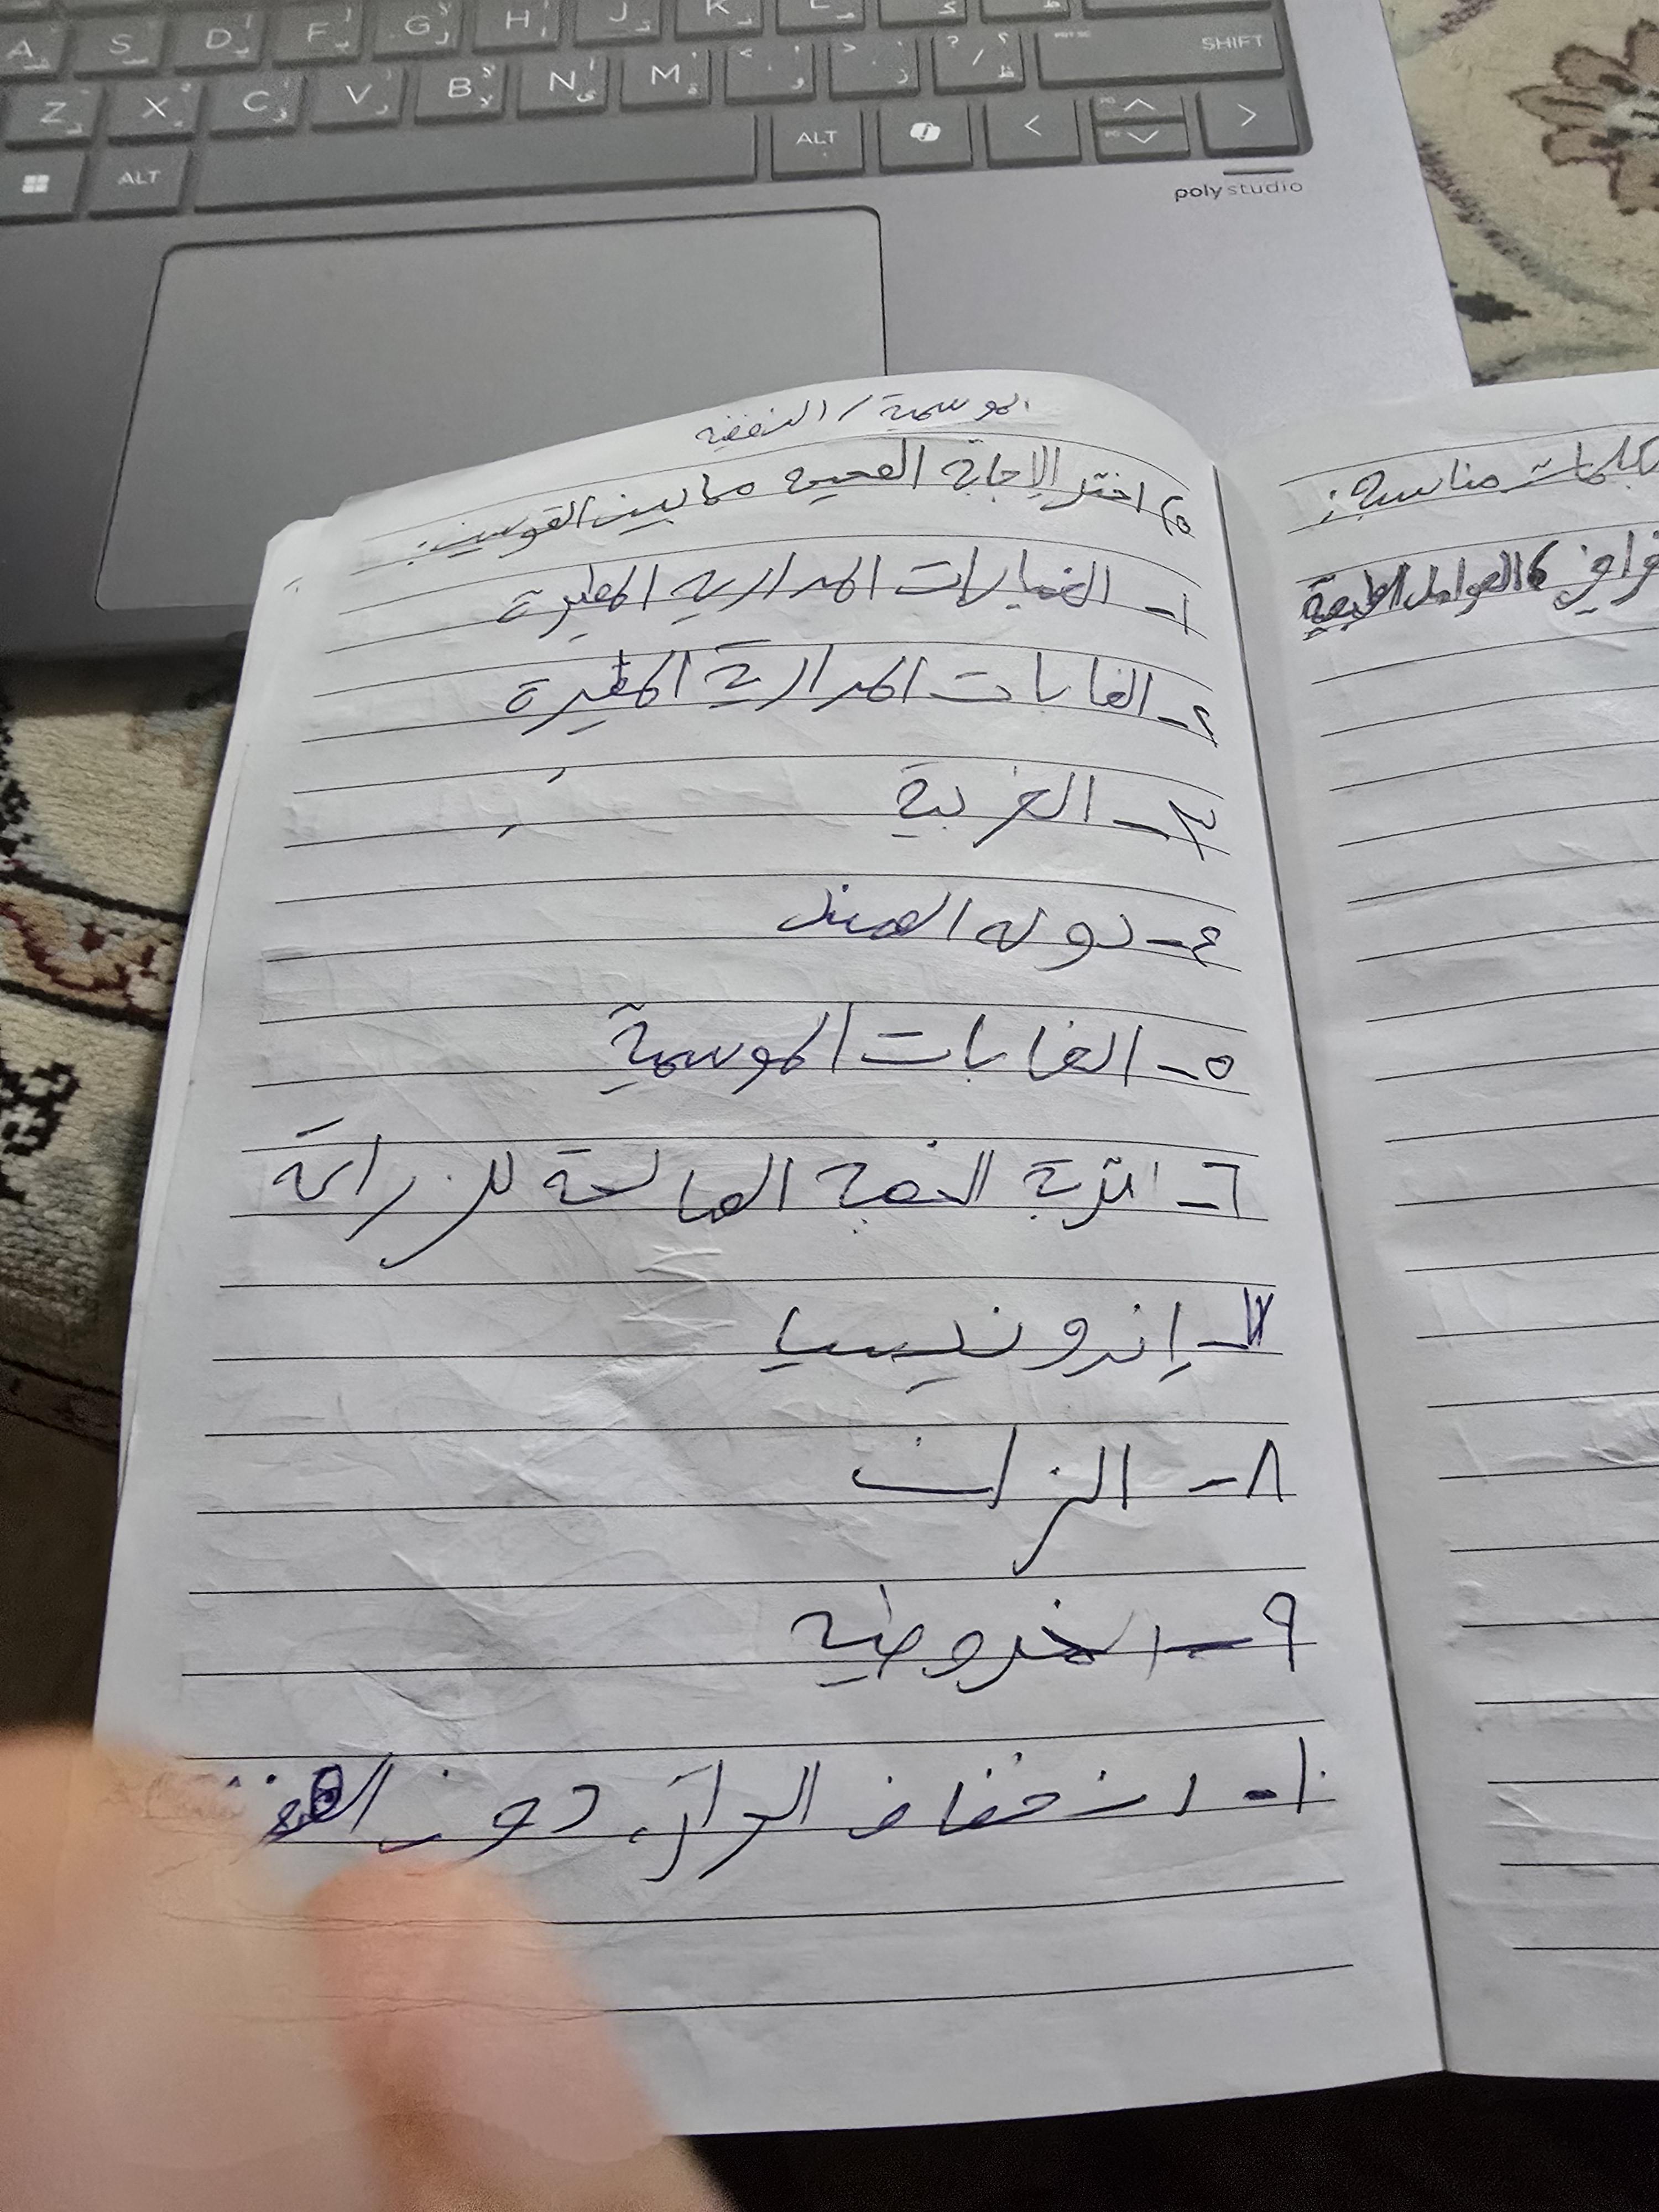 A S D F G H J K L
Z X C V B N M SHIFT
ALT ALT
poly studio
الموسمية / النفضية
اختر الإجابة الصحيحة مما بين القوسين:
١- الغابات المدارية المطيرة
٢- الغابات المدارية المطيرة
٣- الغربية
٤- دولة الهند
٥- الغابات الموسمية
٦- التربة الخصبة الصالحة للزراعة
٧- إندونيسيا
٨- الزان
٩- المخروطية
١٠- انخفاض الحرارة دون الصفر
بكلمات مناسبة:
العوامل الطبيعية